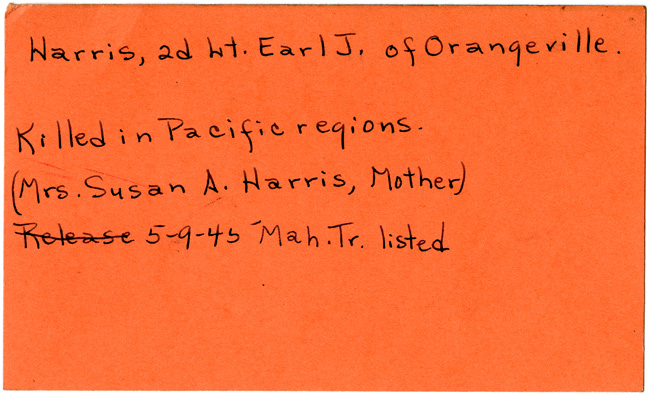 Harris, 2d Lt. Earl J. of Orangeville.
Killed in Pacific regions.
(Mrs. Susan A. Harris, Mother)
Release 5-9-45 Mah. Tr. listed